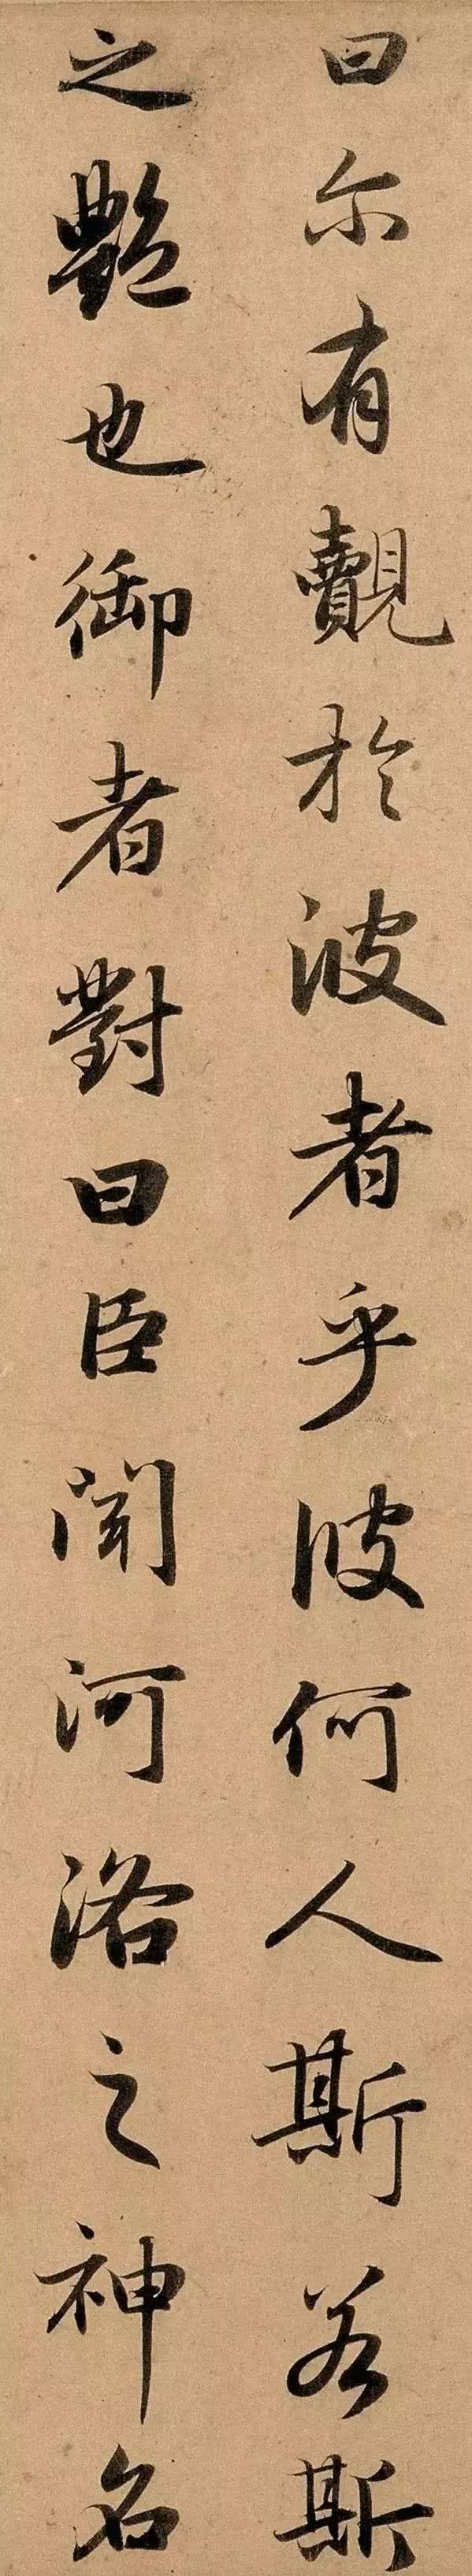 曰尔有觌於彼者乎彼何人斯若斯
之艷也御者對曰臣聞河洛之神名